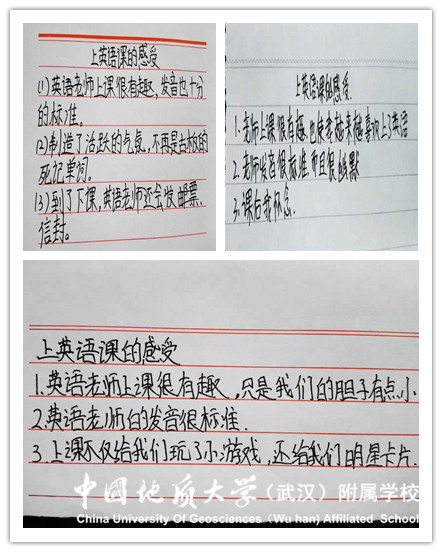 上英语课的感受
(1)英语老师上课很有趣,发音也十分
的标准。
(2)制造了活跃的气氛,不再是古板的
死记单词。
(3)到了下课,英语老师还会发邮票、
信封。
上英语课的感受
1.老师上课很有趣也使我越来越喜欢上了英语
2.老师发音很标准而且很幽默
3.课后我怀念
上英语课的感受
1.英语老师上课很有趣,只是我们的胆子有点小.
2.英语老师的发音很标准.
3.上课不仅给我们玩了小游戏,还给我们明星卡片.
中国地质大学(武汉)附属学校
China University Of Geosciences (Wu han) Affiliated School